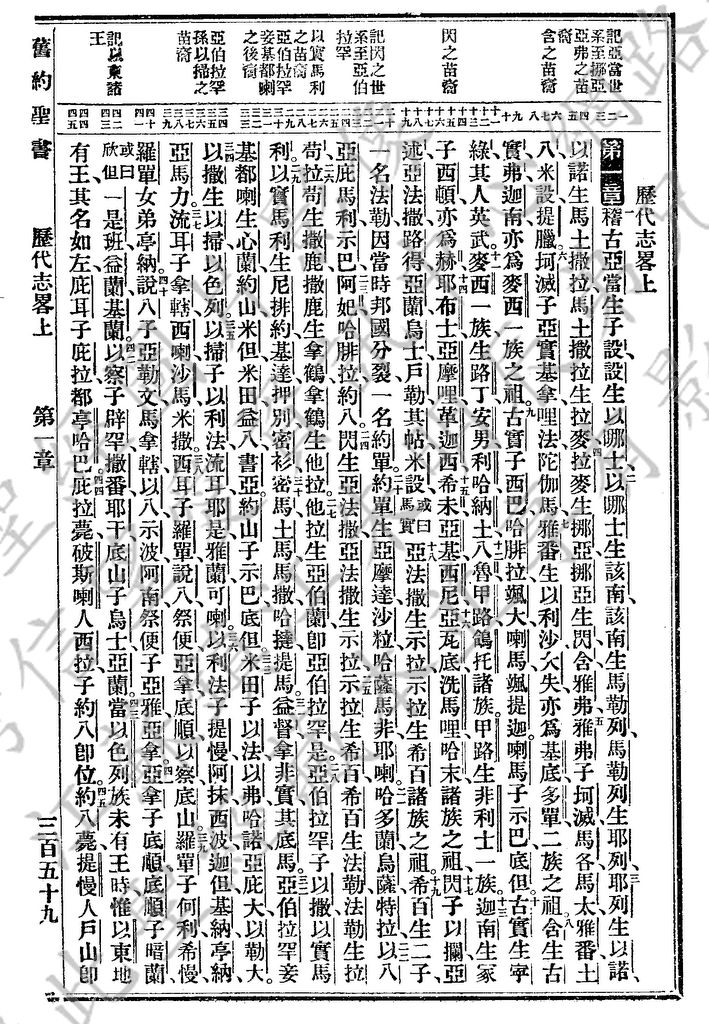 歷代志畧上
第一章 稽古亞當生子設設生以哪士以哪士生該南該南生馬勒列馬勒列生耶列耶列生以諾
以諾生馬土撒拉馬土撒拉生拉麥拉麥生挪亞挪亞生閃含雅弗雅弗子坷滅馬各馬太雅番土
八米設提臘坷滅子亞實基拿哩法陀伽馬雅番生以利沙欠失亦爲基底多單二族之祖含生古
實弗迦南亦爲麥西一族之祖古實子西巴哈腓拉颯大喇馬颯提迦喇馬子示巴底但古實生寧
綠其人英武麥西一族生路丁安男利哈納土八魯甲路鴿托諸族甲路生非利士一族迦南生冢
子西頓亦爲赫耶布士亞摩哩革迦西希未亞基西尼亞瓦底洗馬哩哈末諸族之祖閃子以攔亞
述亞法撒路得亞蘭烏士戶勒其帖米設或曰馬實亞法撒生示拉示拉生希百諸族之祖希百生二子
一名法勒因當時邦國分裂一名約單約單生亞摩達沙粒哈薩馬非耶喇哈多蘭烏薩特拉以八
亞庇馬利示巴阿妃哈腓拉約八閃生亞法撒亞法撒生示拉示拉生希百希百生法勒法勒生拉
苟拉苟生撒鹿撒鹿生拿鶴拿鶴生他拉他拉生亞伯蘭卽亞伯拉罕是亞伯拉罕子以撒以實馬
利以實馬利生尼排約基達押別密衫密馬土馬馬撒哈撻提馬益督拿非實其底馬亞伯拉罕妾
基都喇生心蘭約山米但米田益八書亞約山子示巴底但米田子以法以弗哈諾亞庇大以勒大
以撒生以掃以色列以掃子以利法流耳耶是雅蘭可喇以利法子提慢阿抹西波迦但基納亭納
亞馬力流耳子拿轄西喇沙馬米撒西耳子羅單說八祭便亞拿底順以察底山羅單子何利希慢
羅單女弟亭納說八子亞勒文馬拿轄以八示波阿南祭便子亞雅亞拿亞拿子底順底順子暗蘭
或曰欣但一是班益蘭基蘭以察子辟罕撒番耶干底山子烏士亞蘭當以色列族未有王時惟以東地
有王其名如左庇耳子庇拉都亭哈巴庇拉薨破斯喇人西拉子約八卽位約八薨提慢人戶山卽
記亞當世系至挪亞
亞弗之苗裔
含之苗裔
閃之苗裔
記閃之世系至亞伯拉罕
以實馬利之苗裔
亞伯拉罕妾基都喇之後裔
亞伯拉罕孫以掃之苗裔
記以東諸王
舊約聖書 歷代志畧上 第一章 三百五十九